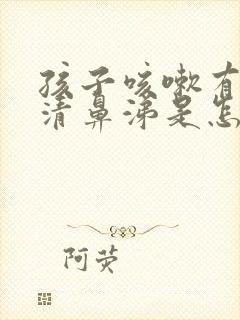 孩子咳嗽有
清鼻涕是怎
阿荧